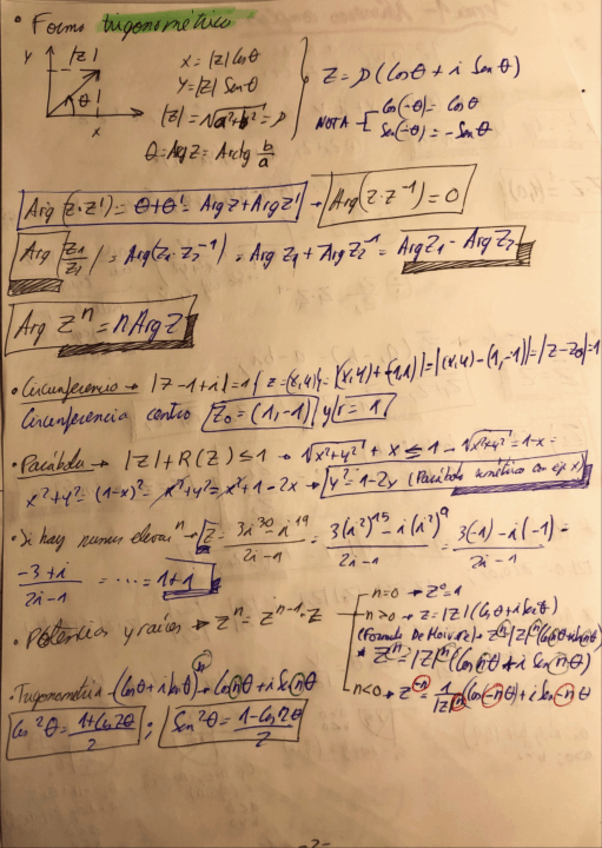 • Forma trigonométrica
y |z| x = |z| Cosθ
θ y = |z| Senθ Z = ρ (Cosθ + i Senθ)
x |z| = √a²+b² = ρ NOTA Cos(-θ) = Cosθ
θ = Arg z = Arctg b/a Sen(-θ) = -Senθ
Arg (z·z') = θ+θ' = Arg z + Arg z' → Arg(z·z⁻¹) = 0
Arg (z₁/z₂) = Arg(z₁·z₂⁻¹) = Arg z₁ + Arg z₂⁻¹ = Arg z₁ - Arg z₂
Arg zⁿ = n Arg z
• Circunferencia → |z-1+i| = 1 { z=(x,y) } = |(x,y)+(-1,1)| = |(x,y)-(1,-1)| = |z-z₀| = 1
Circunferencia centro z₀ = (1,-1) y r = 1
• Parábola → |z| + R(z) ≤ 1 → √x²+y² + x ≤ 1 → √x²+y² = 1-x =
x²+y² = (1-x)² = x²+y² = x²+1-2x → y² = 1-2x (Parábola simétrica con eje x)
• Si hay numeros elevar n → z = 3i³⁰-i¹⁹/2i-1 = 3(i²)¹⁵-i(i²)⁹/2i-1 = 3(-1)-i(-1)/2i-1 =
-3+i/2i-1 = ..... = 1+1
n=0 → z⁰=1
• Potencias y raíces → zⁿ = zⁿ⁻¹·z n>0 → z = |z| (Cosθ + i Senθ)
(Formula De Moivre) → zⁿ = |z|ⁿ (Cosθ + i Senθ)ⁿ
* zⁿ = |z|ⁿ (Cos nθ + i Sen nθ)
n<0 → z⁻ⁿ = 1/|z|ⁿ (Cos -nθ) + i Sen -nθ
• Trigonometría → (Cosθ + i Senθ)ⁿ = Cos nθ + i Sen nθ
Cos²θ = 1+Cos2θ/2 ; Sen²θ = 1-Cos2θ/2
-2-